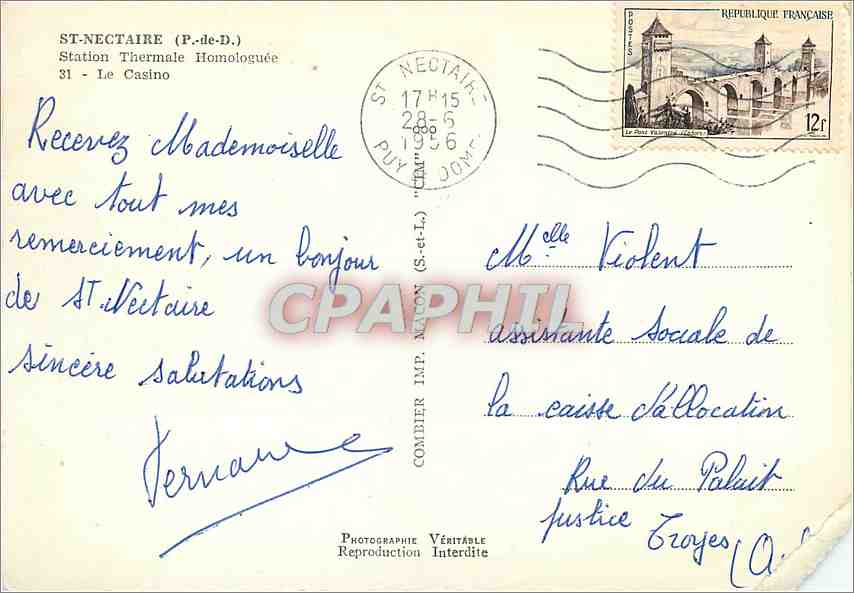 ST-NECTAIRE (P.-de-D.)
Station Thermale Homologuée
31 - Le Casino
Recevez Mademoiselle
avec tout mes
remerciement, un bonjour
de St. Nectaire
sincère salutations
PHOTOGRAPHIE VÉRITABLE
Reproduction Interdite
COMBIER IMP. MACON (S.-et-L.) "CIM"
ST NECTAIRE
17H15
28-6
1956
PUY DE DOME
REPUBLIQUE FRANÇAISE
POSTES
Le Pont Valentré (Cahors)
12f
CPAPHIL
Melle Violent
assistante sociale de
la caisse d'allocation
Rue du Palait
justice
Troyes